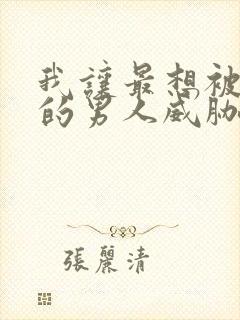 我讓最想被
的男人威脅
張麗清